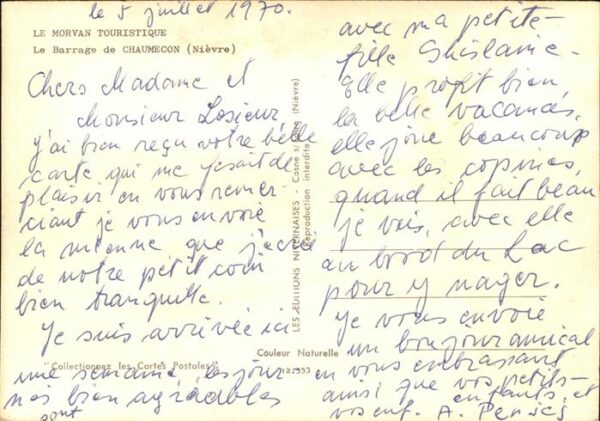 le 5 juillet 1970.
LE MORVAN TOURISTIQUE
Le Barrage de CHAUMECON (Nièvre)
Chers Madame et
Monsieur Lesieur
j'ai bien reçu votre belle
carte qui me fesait de
plaisir en vous remer-
ciant je vous envoie
la mienne que j'écrie
de notre petit coin
bien tranquille.
Je suis arrivée ici
une semaine, les jour-
nés bien agréables
sont
"Collectionnez les Cartes Postales"
Couleur Naturelle
LES EDITIONS NIVERNAISES - Cosne s/Loire (Nièvre)
(Reproduction interdite)
avec ma petite-
fille Ghislaine.
Elle profit bien
la belle vacances,
elle joue beaucoup
avec les copines,
quand il fait beau
je vais, avec elle
au bord du Lac
pour y nager.
Je vous envoie
un bonjour amical
en vous embrassant
ainsi que vos petits-
enfants et
A.